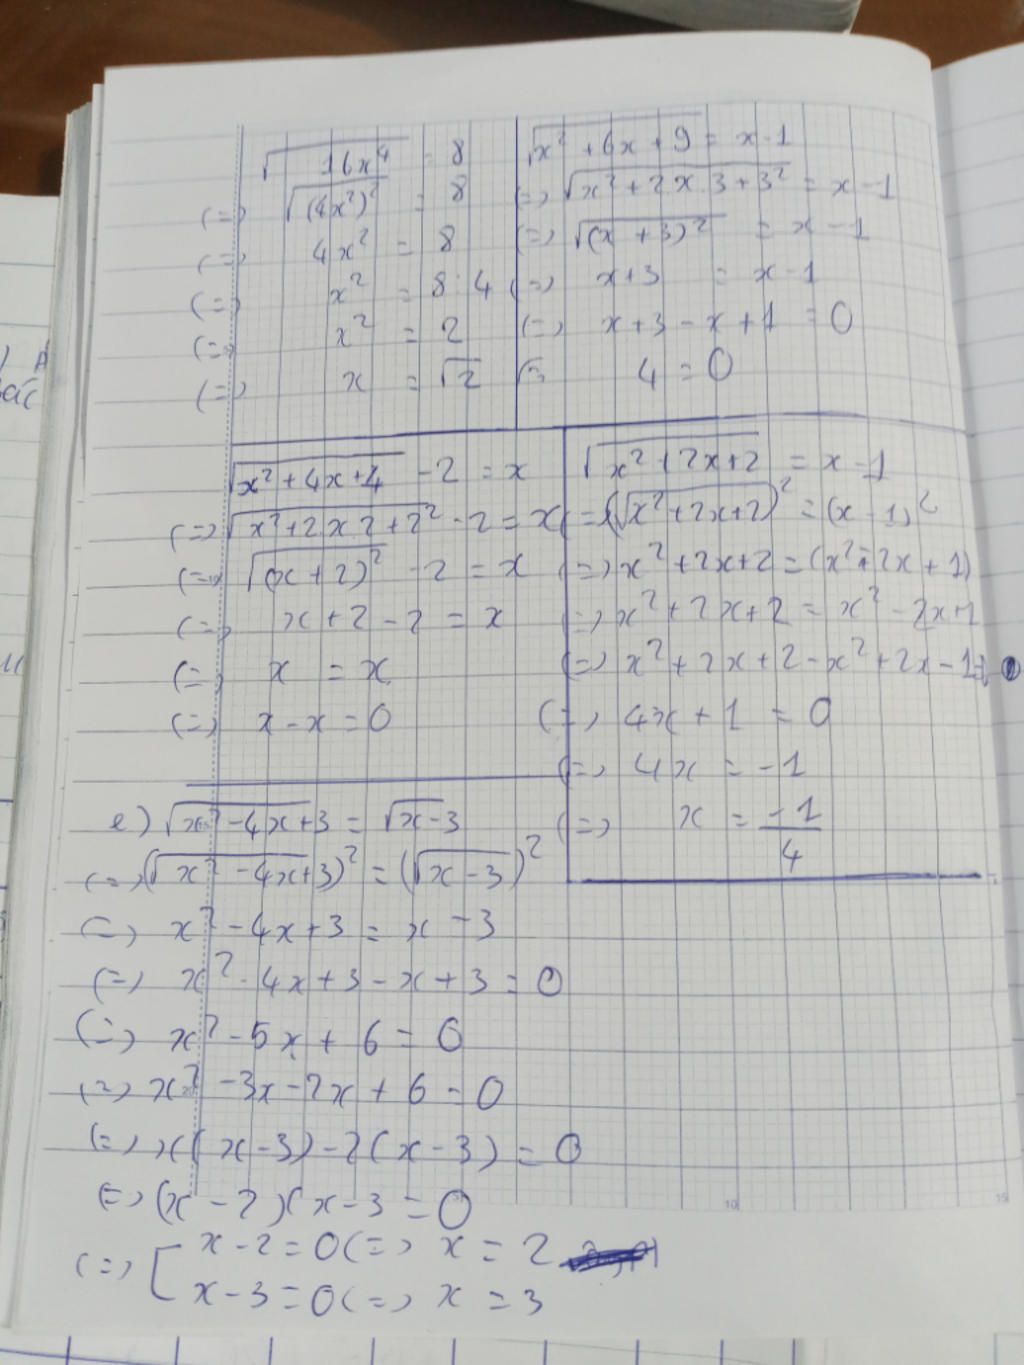 √16x⁴ = 8
(=) √(4x²)² = 8
(=) 4x² = 8
(=) x² = 8 : 4
(=) x² = 2
(=) x = √2
√x² + 6x + 9 = x - 1
(=) √x² + 2x.3 + 3² = x - 1
(=) √(x + 3)² = x - 1
(=) x+3 = x - 1
(=) x + 3 - x + 1 = 0
4 = 0
√x² + 4x + 4 - 2 = x
(=) √x² + 2x2 + 2² - 2 = x
(=) √(x + 2)² - 2 = x
(=) x + 2 - 2 = x
(=) x = x
(=) x - x = 0
√x² + 2x + 2 = x - 1
(=) (√x² + 2x + 2)² = (x - 1)²
(=) x² + 2x + 2 = (x² - 2x + 1)
(=) x² + 2x + 2 = x² - 2x + 1
(=) x² + 2x + 2 - x² + 2x - 1 =
(=) 4x + 1 = 0
(=) 4x = -1
(=) x = -1/4
e) √x² - 4x + 3 = √x - 3
(=) (√x² - 4x + 3)² = (√x - 3)²
(=) x² - 4x + 3 = x - 3
(=) x² - 4x + 3 - x + 3 = 0
(=) x² - 5x + 6 = 0
(=) x² - 3x - 2x + 6 = 0
(=) x(x - 3) - 2(x - 3) = 0
(=) (x - 2)(x - 3 = 0
(=) [ x - 2 = 0 (=) x = 2
x - 3 = 0 (=) x = 3